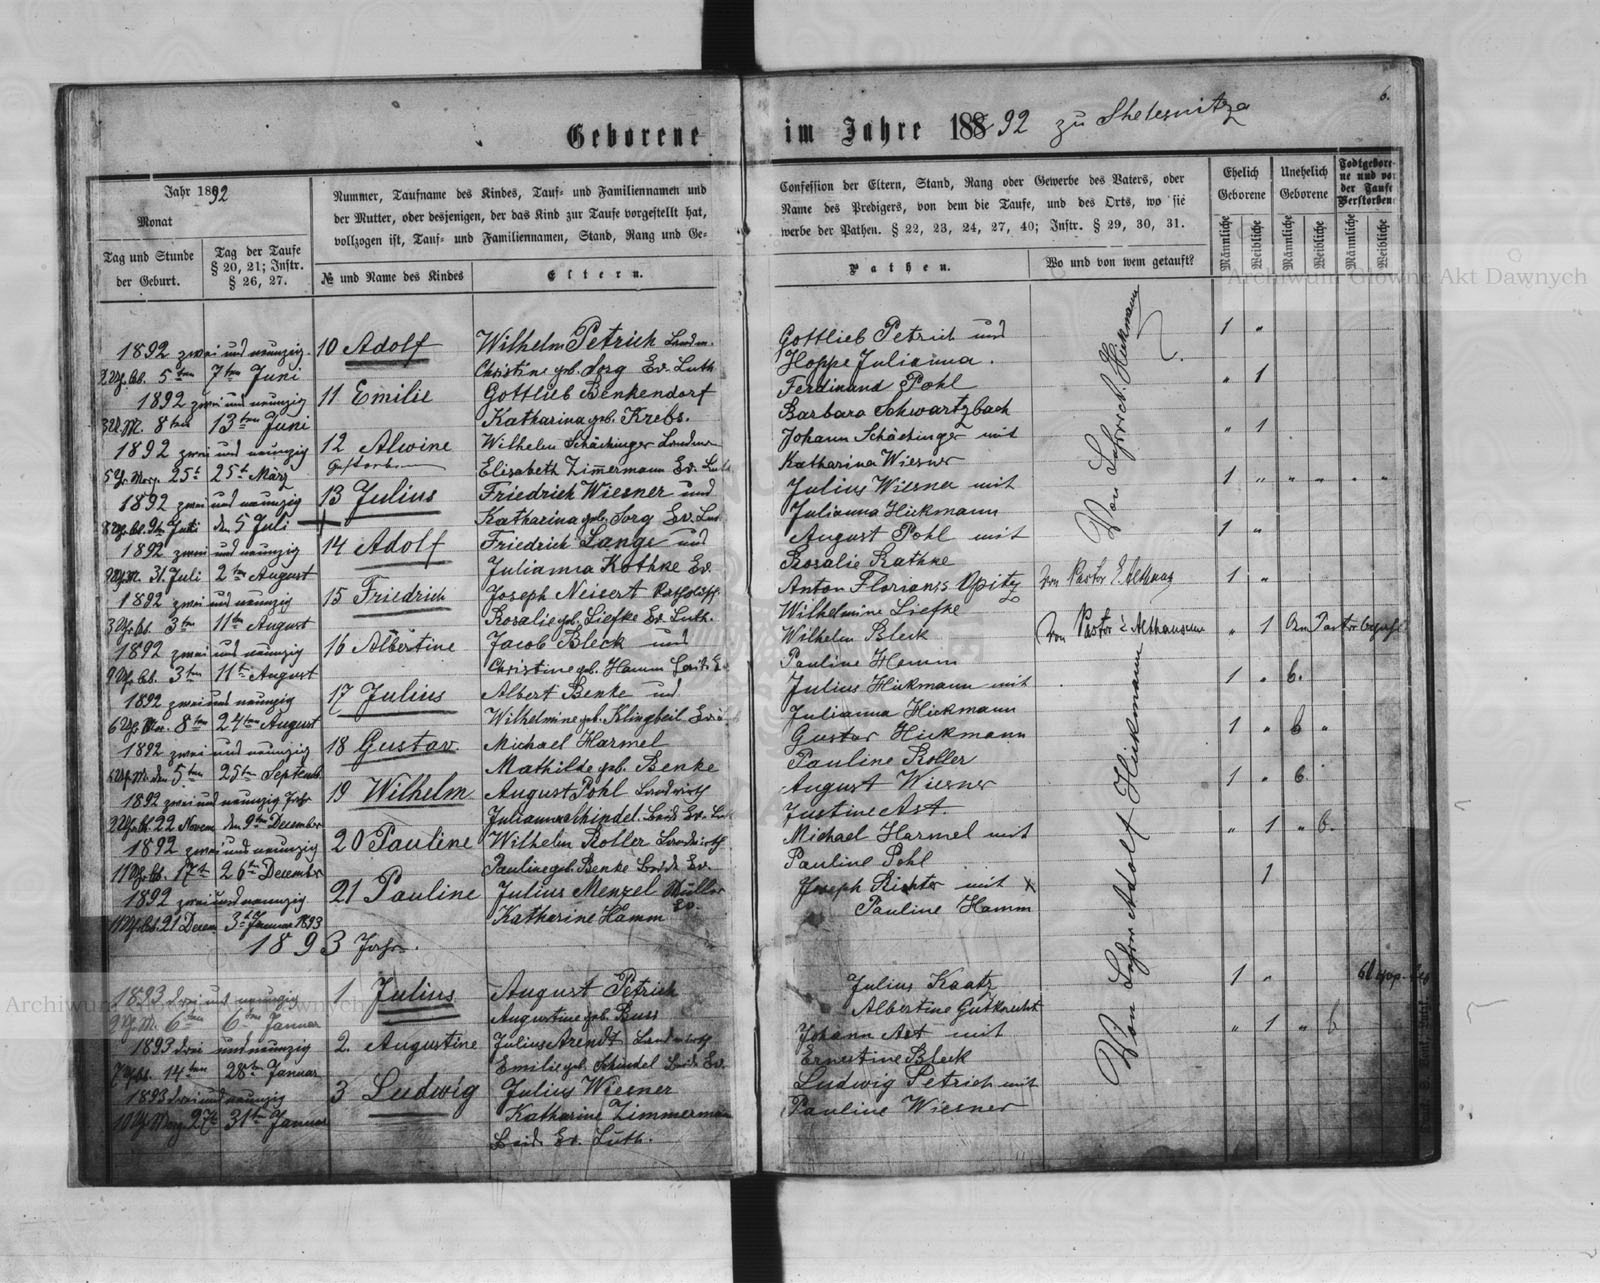 6.
Geborene im Jahre 188 92 zu Shelesnitza
Jahr 1892
Monat
Tag und Stunde der Geburt.
Tag der Taufe § 20, 21; Instr. § 26, 27.
Nummer, Taufname des Kindes, Tauf- und Familiennamen und
der Mutter, oder desjenigen, der das Kind zur Taufe vorgestellt hat,
vollzogen ist, Tauf- und Familiennamen, Stand, Rang und Ge-
№ und Name des Kindes
Eltern.
Confession der Eltern, Stand, Rang oder Gewerbe des Vaters, oder
Name des Predigers, von dem die Taufe, und des Orts, wo sie
werbe der Pathen. § 22, 23, 24, 27, 40; Instr. § 29, 30, 31.
Pathen.
Wo und von wem getauft?
Ehelich Geborene
Unehelich Geborene
Todtgebore-
ne und vor
der Taufe
Verstorbene
Männliche
Weibliche
Männliche
Weibliche
Männliche
Weibliche
Archiwum Główne Akt Dawnych
1892 zwei und neunzig 10 Adolf Wilhelm Petrich Gottlieb Petrich und 1 "
5ten 7ten Juni Christine geb. Sorg Ev. Luth Hoppe Julianna.
1892 zwei und neunzig 11 Emilie Gottlieb Benkendorf Ferdinand Pohl " 1
8ten 13ten Juni Katharina geb. Krebs. Barbara Schwartzbach
1892 zwei und neunzig 12 Alwine Wilhelm Schäckinger Johann Schäckinger mit " 1
Gestorben
25t 25t März Elisabeth Zimmermann Ev. Luth Katharina Wiesner
1892 zwei und neunzig 13 Julius Friedrich Wiesner und Julius Wiesner mit 1 " " " " "
Juli den 5 Juli Katharina geb. Sorg Ev. Lut Julianna Hickmann
1892 zwei und neunzig 14 Adolf Friedrich Lange und August Pohl mit 1 "
31. Juli 2ten August Julianna Kothke Ev. Rosalie Rathke
1892 zwei und neunzig 15 Friedrich Joseph Neisert Anton Florians Opitz Von Pastor 1 "
3ten 11ten August Rosalie geb. Liefke Ev. Luth. Wilhelmine Liefke
1892 zwei und neunzig 16 Albertine Jacob Bleck und Wilhelm Bleck Von Pastor Althausen " 1
3ten 11ten August Christine geb. Hamm Pauline Hamm
1892 zwei und neunzig 17 Julius Albert Benke und Julius Hickmann mit 1 " b.
8ten 24ten August Wilhelmine geb. Klingbeil Julianna Hickmann
1892 zwei und neunzig 18 Gustav. Michael Harmel Gustav Hickmann 1 " b "
5ten 25ten Septemb. Mathilde geb. Benke Pauline Roller
1892 zwei und neunzig Jahr 19 Wilhelm August Pohl Landwirth August Wiesner 1 " b.
22 Novem den 9ten December Julianna Schindel. Beide Ev. Justine Ast.
1892 zwei und neunzig 20 Pauline Wilhelm Roller Landwirth Michael Harmel mit " 1 " b.
17ten 26ten December Pauline geb. Benke Beide Ev. Pauline Pohl
1892 zwei und neunzig 21 Pauline Julius Menzel Müller Joseph Richter mit 1
21 Decem 3t Januar 1893 Katharine Hamm Ev. Pauline Hamm
1893 Jahr.
1893 drei und neunzig 1 Julius August Petrich Julius Kaatz 1 "
6ten 6ten Januar Augustine geb. Buss Albertine Gutknecht
1893 drei und neunzig 2. Augustine Julius Arendt Landwirth Johann Ast mit " 1 " b
14ten 28ten Januar Emilie geb. Schindel Beide Ev. Ernestine Bleck
1893 drei und neunzig 3 Ludwig Julius Wiesner Ludwig Petrich mit
27t 31ten Januar Katharine Zimmermann Pauline Wiesner
Beide Ev. Luth.
Hickmann
Von Lehrer Adolf Hickmann
Archiwum Główne Akt Dawnych